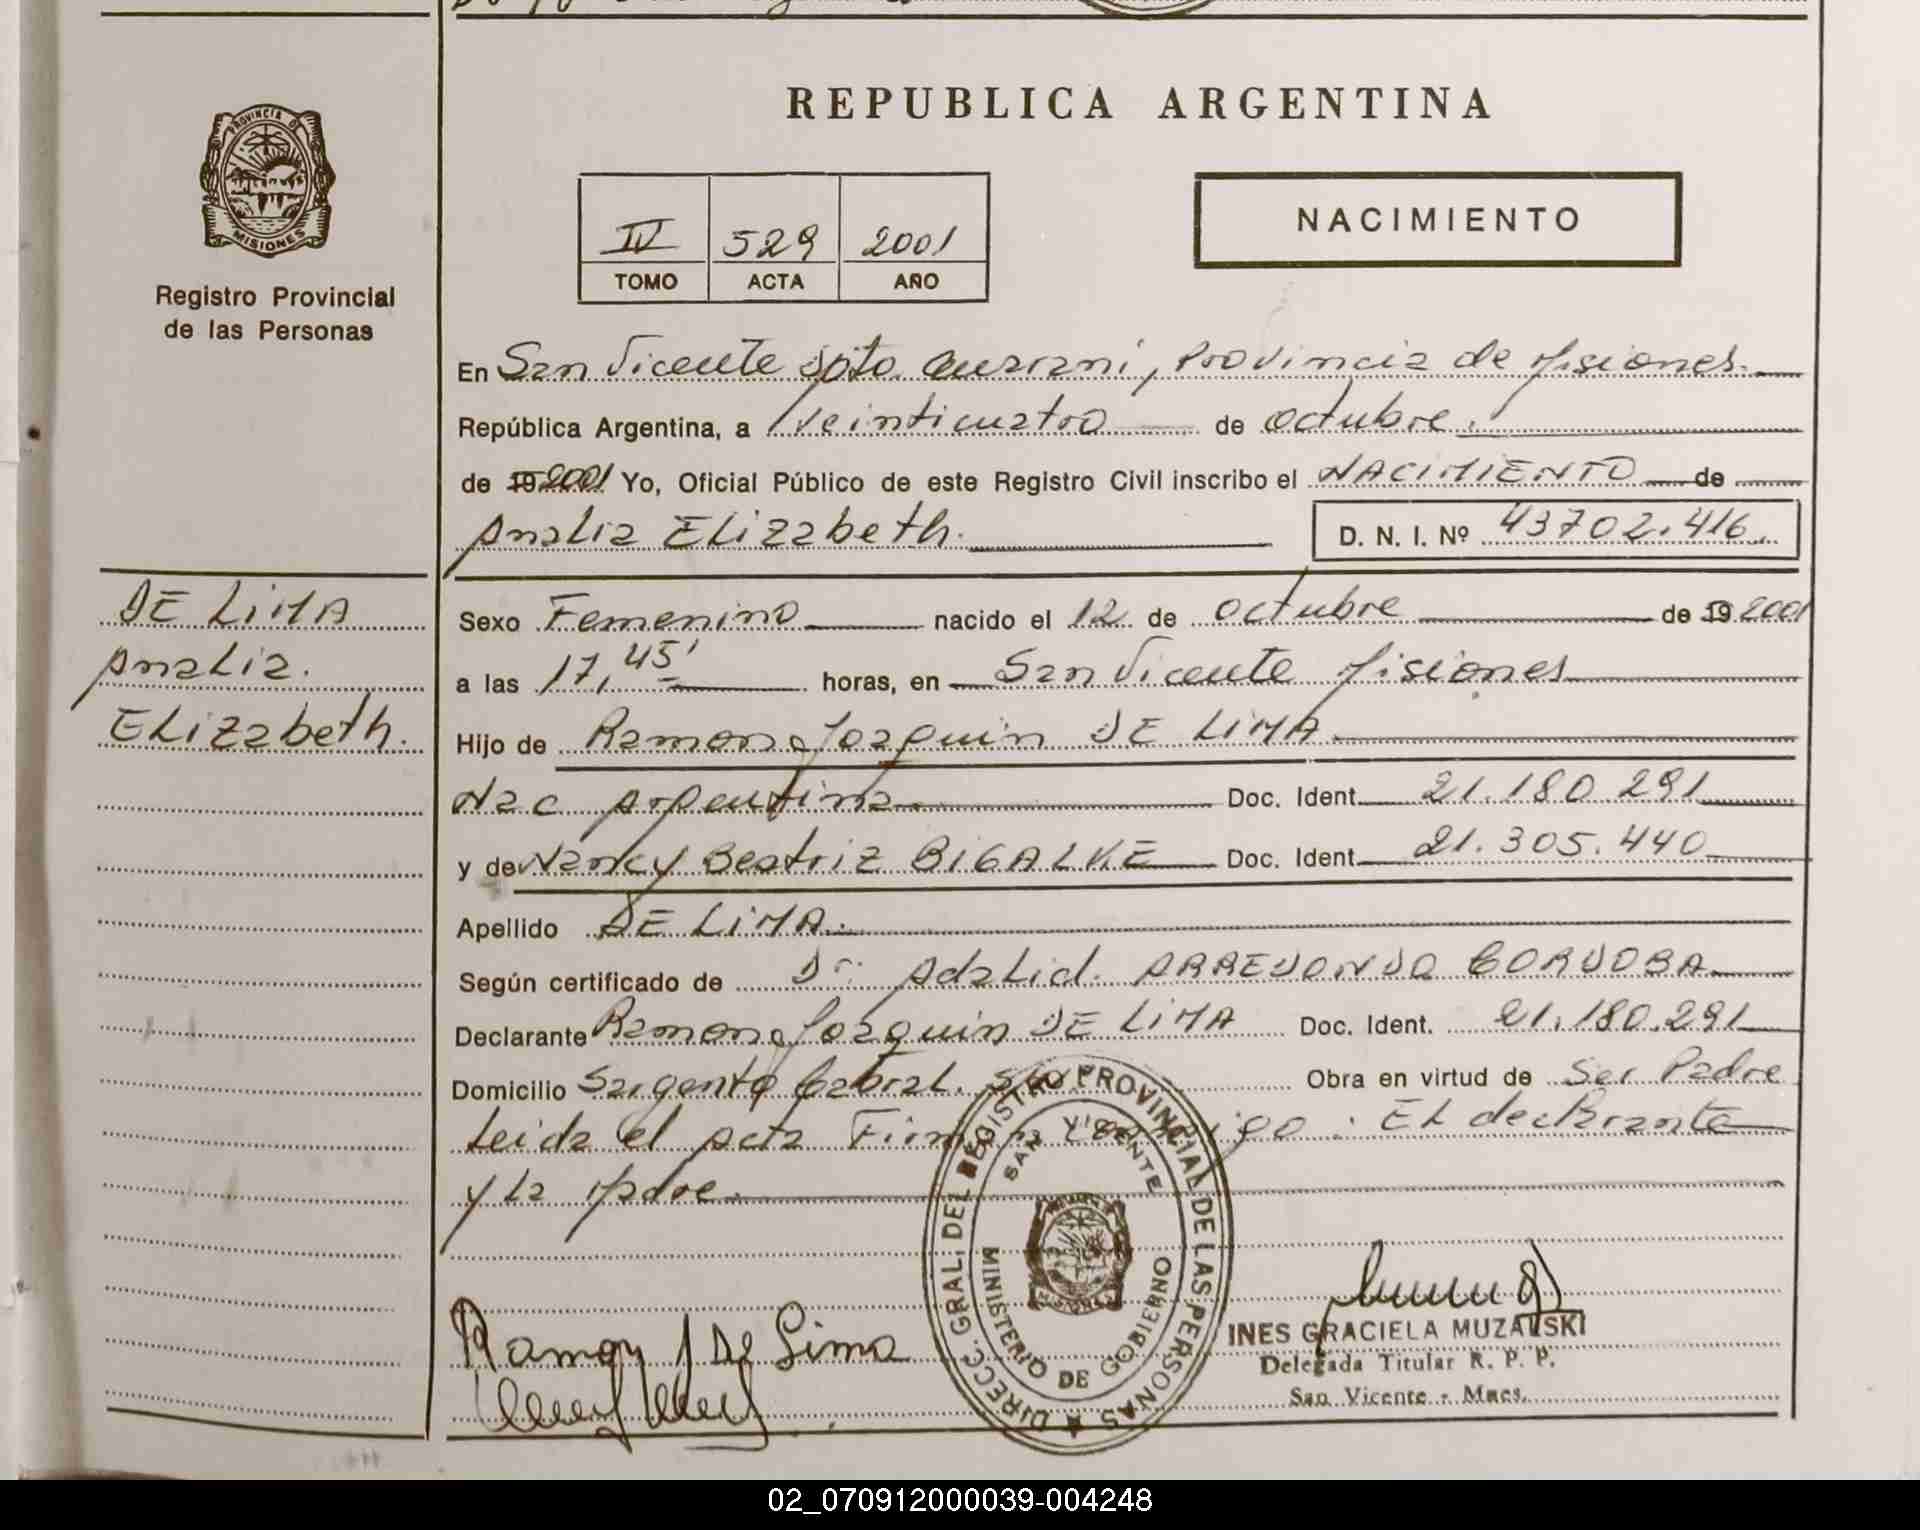 REPUBLICA ARGENTINA
PROVINCIA DE
MISIONES
Registro Provincial
de las Personas
IV 529 2001
TOMO ACTA AÑO
NACIMIENTO
En San Vicente Dpto. Guarani, Provincia de Misiones.
República Argentina, a veinticuatro de octubre.
de 19 2001 Yo, Oficial Público de este Registro Civil inscribo el NACIMIENTO de
Analia Elizabeth. D. N. I. Nº 43702.416.
DE LIMA
Analia.
Elizabeth.
Sexo Femenino nacido el 12 de octubre de 19 2001
a las 17,45' horas, en San Vicente Misiones
Hijo de Ramon Joaquin DE LIMA
Nac Argentina Doc. Ident. 21.180.291
y de Nancy Beatriz BIGALKE Doc. Ident. 21.305.440
Apellido DE LIMA.
Según certificado de Dr. Adalid. ARREDONDO CORDOBA
Declarante Ramon Joaquin DE LIMA Doc. Ident. 21.180.291
Domicilio Sargento Cabral. S/Nº Obra en virtud de Ser Padre
Leida el Acta Firman conmigo: El declarante
y la Madre.
DIRECC. GRAL. DEL REGISTRO PROVINCIAL DE LAS PERSONAS
SAN VICENTE
MISIONES
MINISTERIO DE GOBIERNO
Ramon J De Lima
INES GRACIELA MUZALSKI
Delegada Titular R. P. P.
San Vicente - Mnes.
02_070912000039-004248